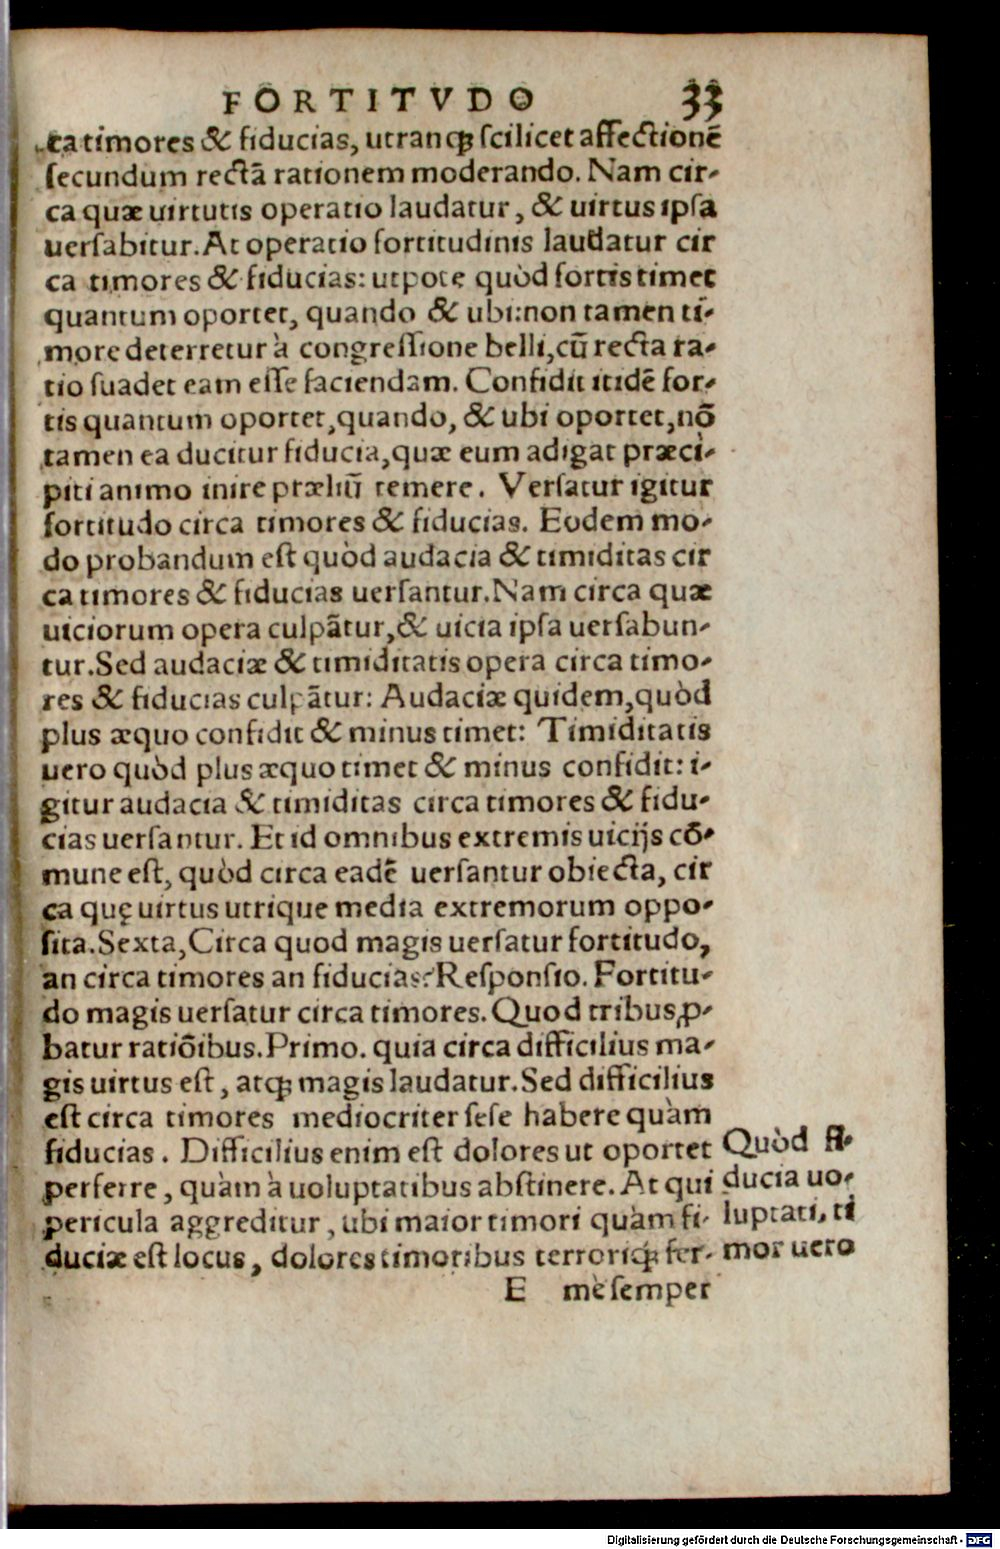 FORTITVDO 33
ca timores & fiducias, utranqꝫ ſcilicet affectionẽ
ſecundum rectã rationem moderando. Nam cir-
ca quæ uirtutis operatio laudatur, & uirtus ipſa
uerſabitur. At operatio fortitudinis laudatur cir
ca timores & fiducias: utpote quòd fortis timet
quantum oportet, quando & ubi: non tamen ti-
more deterretur à congreſſione belli, cũ recta ra-
tio ſuadet eam eſſe faciendam. Confidit itidẽ for-
tis quantum oportet, quando, & ubi oportet, nõ
tamen ea ducitur fiducia, quæ eum adigat præci-
piti animo inire præliũ temere. Verſatur igitur
fortitudo circa timores & fiducias. Eodem mo-
do probandum eſt quòd audacia & timiditas cir
ca timores & fiducias uerſantur. Nam circa quæ
uiciorum opera culpãtur, & uicia ipſa uerſabun-
tur. Sed audaciæ & timiditatis opera circa timo-
res & fiducias culpãtur: Audaciæ quidem, quòd
plus æquo confidit & minus timet: Timiditatis
uero quòd plus æquo timet & minus confidit: i-
gitur audacia & timiditas circa timores & fidu-
cias uerſantur. Et id omnibus extremis uicijs cõ-
mune eſt, quòd circa eadẽ uerſantur obiecta, cir
ca quę uirtus utrique media extremorum oppo-
ſita. Sexta, Circa quod magis uerſatur fortitudo,
an circa timores an fiducias? Reſponſio. Fortitu-
do magis uerſatur circa timores. Quod tribus ꝓ-
batur ratiõibus. Primo. quia circa difficilius ma-
gis uirtus eſt, atqꝫ magis laudatur. Sed difficilius
eſt circa timores mediocriter ſeſe habere quàm
fiducias. Difficilius enim eſt dolores ut oportet
perferre, quàm à uoluptatibus abſtinere. At qui
pericula aggreditur, ubi maior timori quàm fi-
duciæ eſt locus, dolores timoribus terroriqꝫ fer-
E mè ſemper
Quòd fi-
ducia uo-
luptati, ti
mor uero
Digitalisierung gefördert durch die Deutsche Forschungsgemeinschaft - DFG